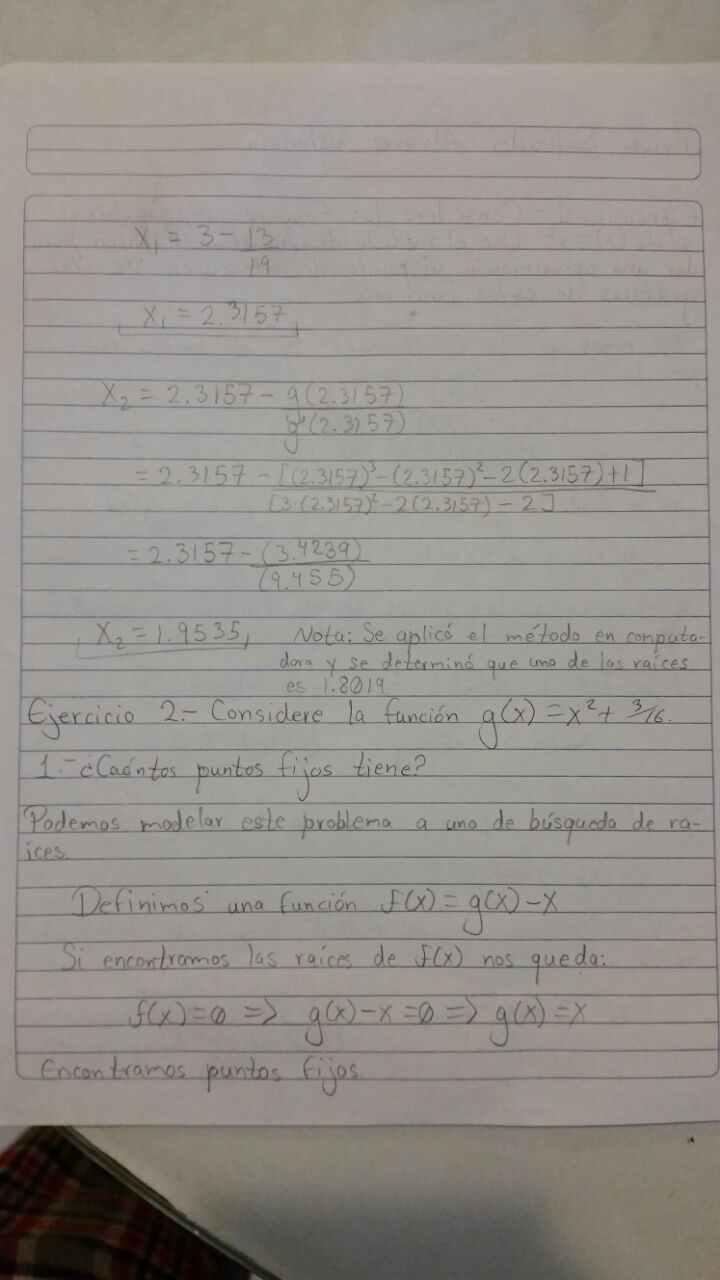 X₁ = 3 - 13/19
X₁ = 2.3157
X₂ = 2.3157 - g(2.3157)/g'(2.3157)
= 2.3157 - [(2.3157)³-(2.3157)²-2(2.3157)+1]/[3·(2.3157)²-2(2.3157)-2]
= 2.3157 - (3.4239)/(9.455)
X₂ = 1.9535, Nota: Se aplicó el método en computa-
dora y se determinó que una de las raíces
es 1.8019
Ejercicio 2.- Considere la función g(x) = x² + 3/16.
1.- ¿Cuántos puntos fijos tiene?
Podemos modelar este problema a uno de búsqueda de ra-
íces.
Definimos una función f(x) = g(x) - x
Si encontramos las raíces de f(x) nos queda:
f(x) = 0 => g(x) - x = 0 => g(x) = x
Encontramos puntos fijos.